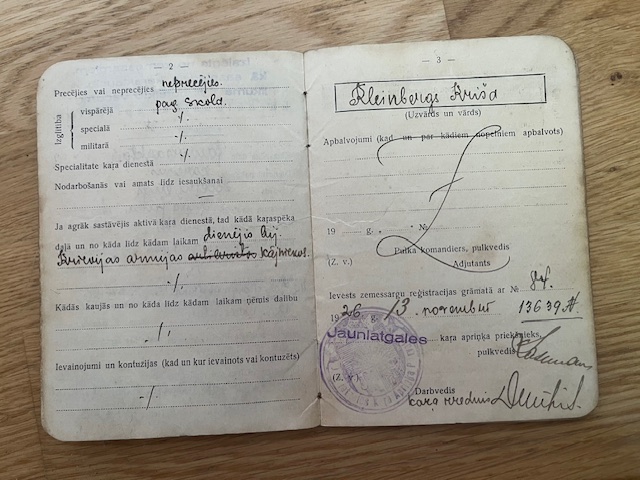 — 2 —
Precējies vai neprecējies neprecējies.
Izglītība
vispārējā pag. skola.
speciālā -/.
militarā -/.
Specialitate kaŗa dienestā -/.
Nodarbošanās vai amats līdz iesaukšanai —
Ja agrāk sastāvējis aktivā kaŗa dienestā, tad kādā kaŗaspēka
daļā un no kāda līdz kādam laikam dienējis bij.
Krievijas armijas kājniekos.
-/.
Kādās kaujās un no kāda līdz kādam laikam ņēmis dalību
-/.
Ievainojumi un kontuzijas (kad un kur ievainots vai kontuzēts)
-/.
— 3 —
Kleinbergs Krišs
(Uzvārds un vārds)
Apbalvojumi (kad un par kādiem nopelniem apbalvots)
19 g. № 
Pulka komandiers, pulkvedis
(Z. v.) Adjutants
Ievests zemessargu reģistrācijas grāmatā ar №
1926 g. 13. novembrī 13639
Jaunlatgales kaŗa apriņķa priekšnieks,
pulkvedis
(Z. v.)
Darbvedis
kaŗa ierēdnis